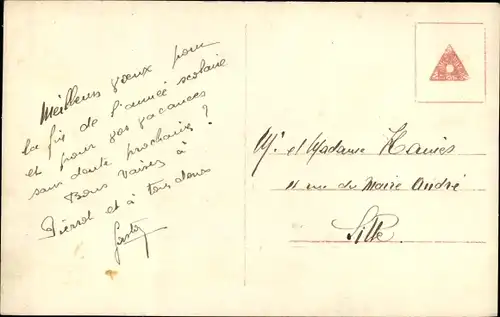 Meilleurs vœux pour
la fin de l'année scolaire
et pour vos vacances
sans doute prochaines ?
Bons baisers à
Pierrot et à tous deux
Mr et Madame Hanies
11 rue du Maire André
Lille